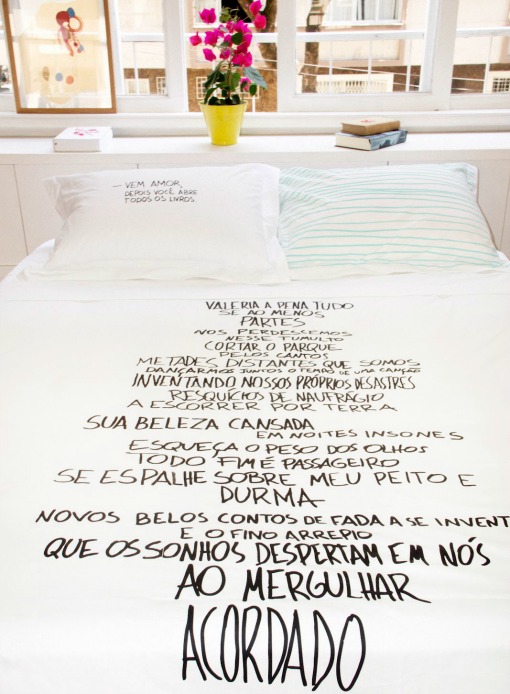 — VEM AMOR,
DEPOIS VOCÊ ABRE
TODOS OS LIVROS.
VALERIA A PENA TUDO
SE AO MENOS
PARTES
NOS PERDESSEMOS
NESSE TUMULTO
CORTAR O PARQUE
PELOS CANTOS
METADES DISTANTES QUE SOMOS
DANÇARMOS JUNTOS O TEMPO DE UMA CANÇÃO
INVENTANDO NOSSOS PRÓPRIOS DESASTRES
RESQUÍCIOS DE NAUFRÁGIO
A ESCORRER POR TERRA
SUA BELEZA CANSADA
EM NOITES INSONES
ESQUEÇA O PESO DOS OLHOS
TODO FIM É PASSAGEIRO
SE ESPALHE SOBRE MEU PEITO E
DURMA
NOVOS BELOS CONTOS DE FADA A SE INVENT
E O FINO ARREPIO
QUE OS SONHOS DESPERTAM EM NÓS
AO MERGULHAR
ACORDADO